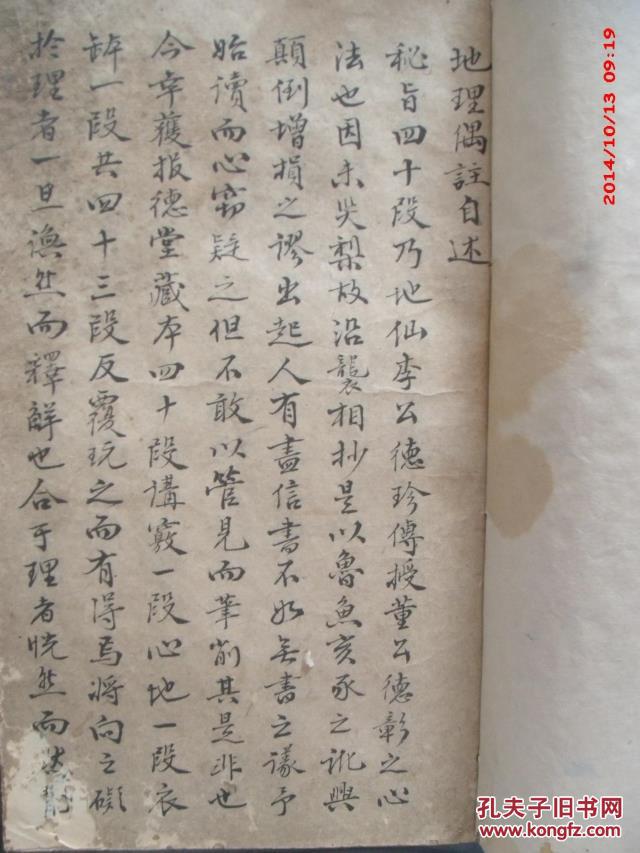 地理偶註自述
秘旨四十段乃地仙李公德珍傳授董公德彰之心
法也因未災梨故沿襲相抄是以魯魚亥豕之訛與
顛倒增損之謬出起人有盡信書不如無書之議予
始讀而心竊疑之但不敢以管見而筆削其是非也
今幸獲报德堂藏本四十段講竅一段心地一段衣
鉢一段共四十三段反覆玩之而有得焉將向之礙
於理者一旦渙然而釋觧也合于理者恍然而
2014/10/13 09:19
孔夫子旧书网
KONGFZ.COM